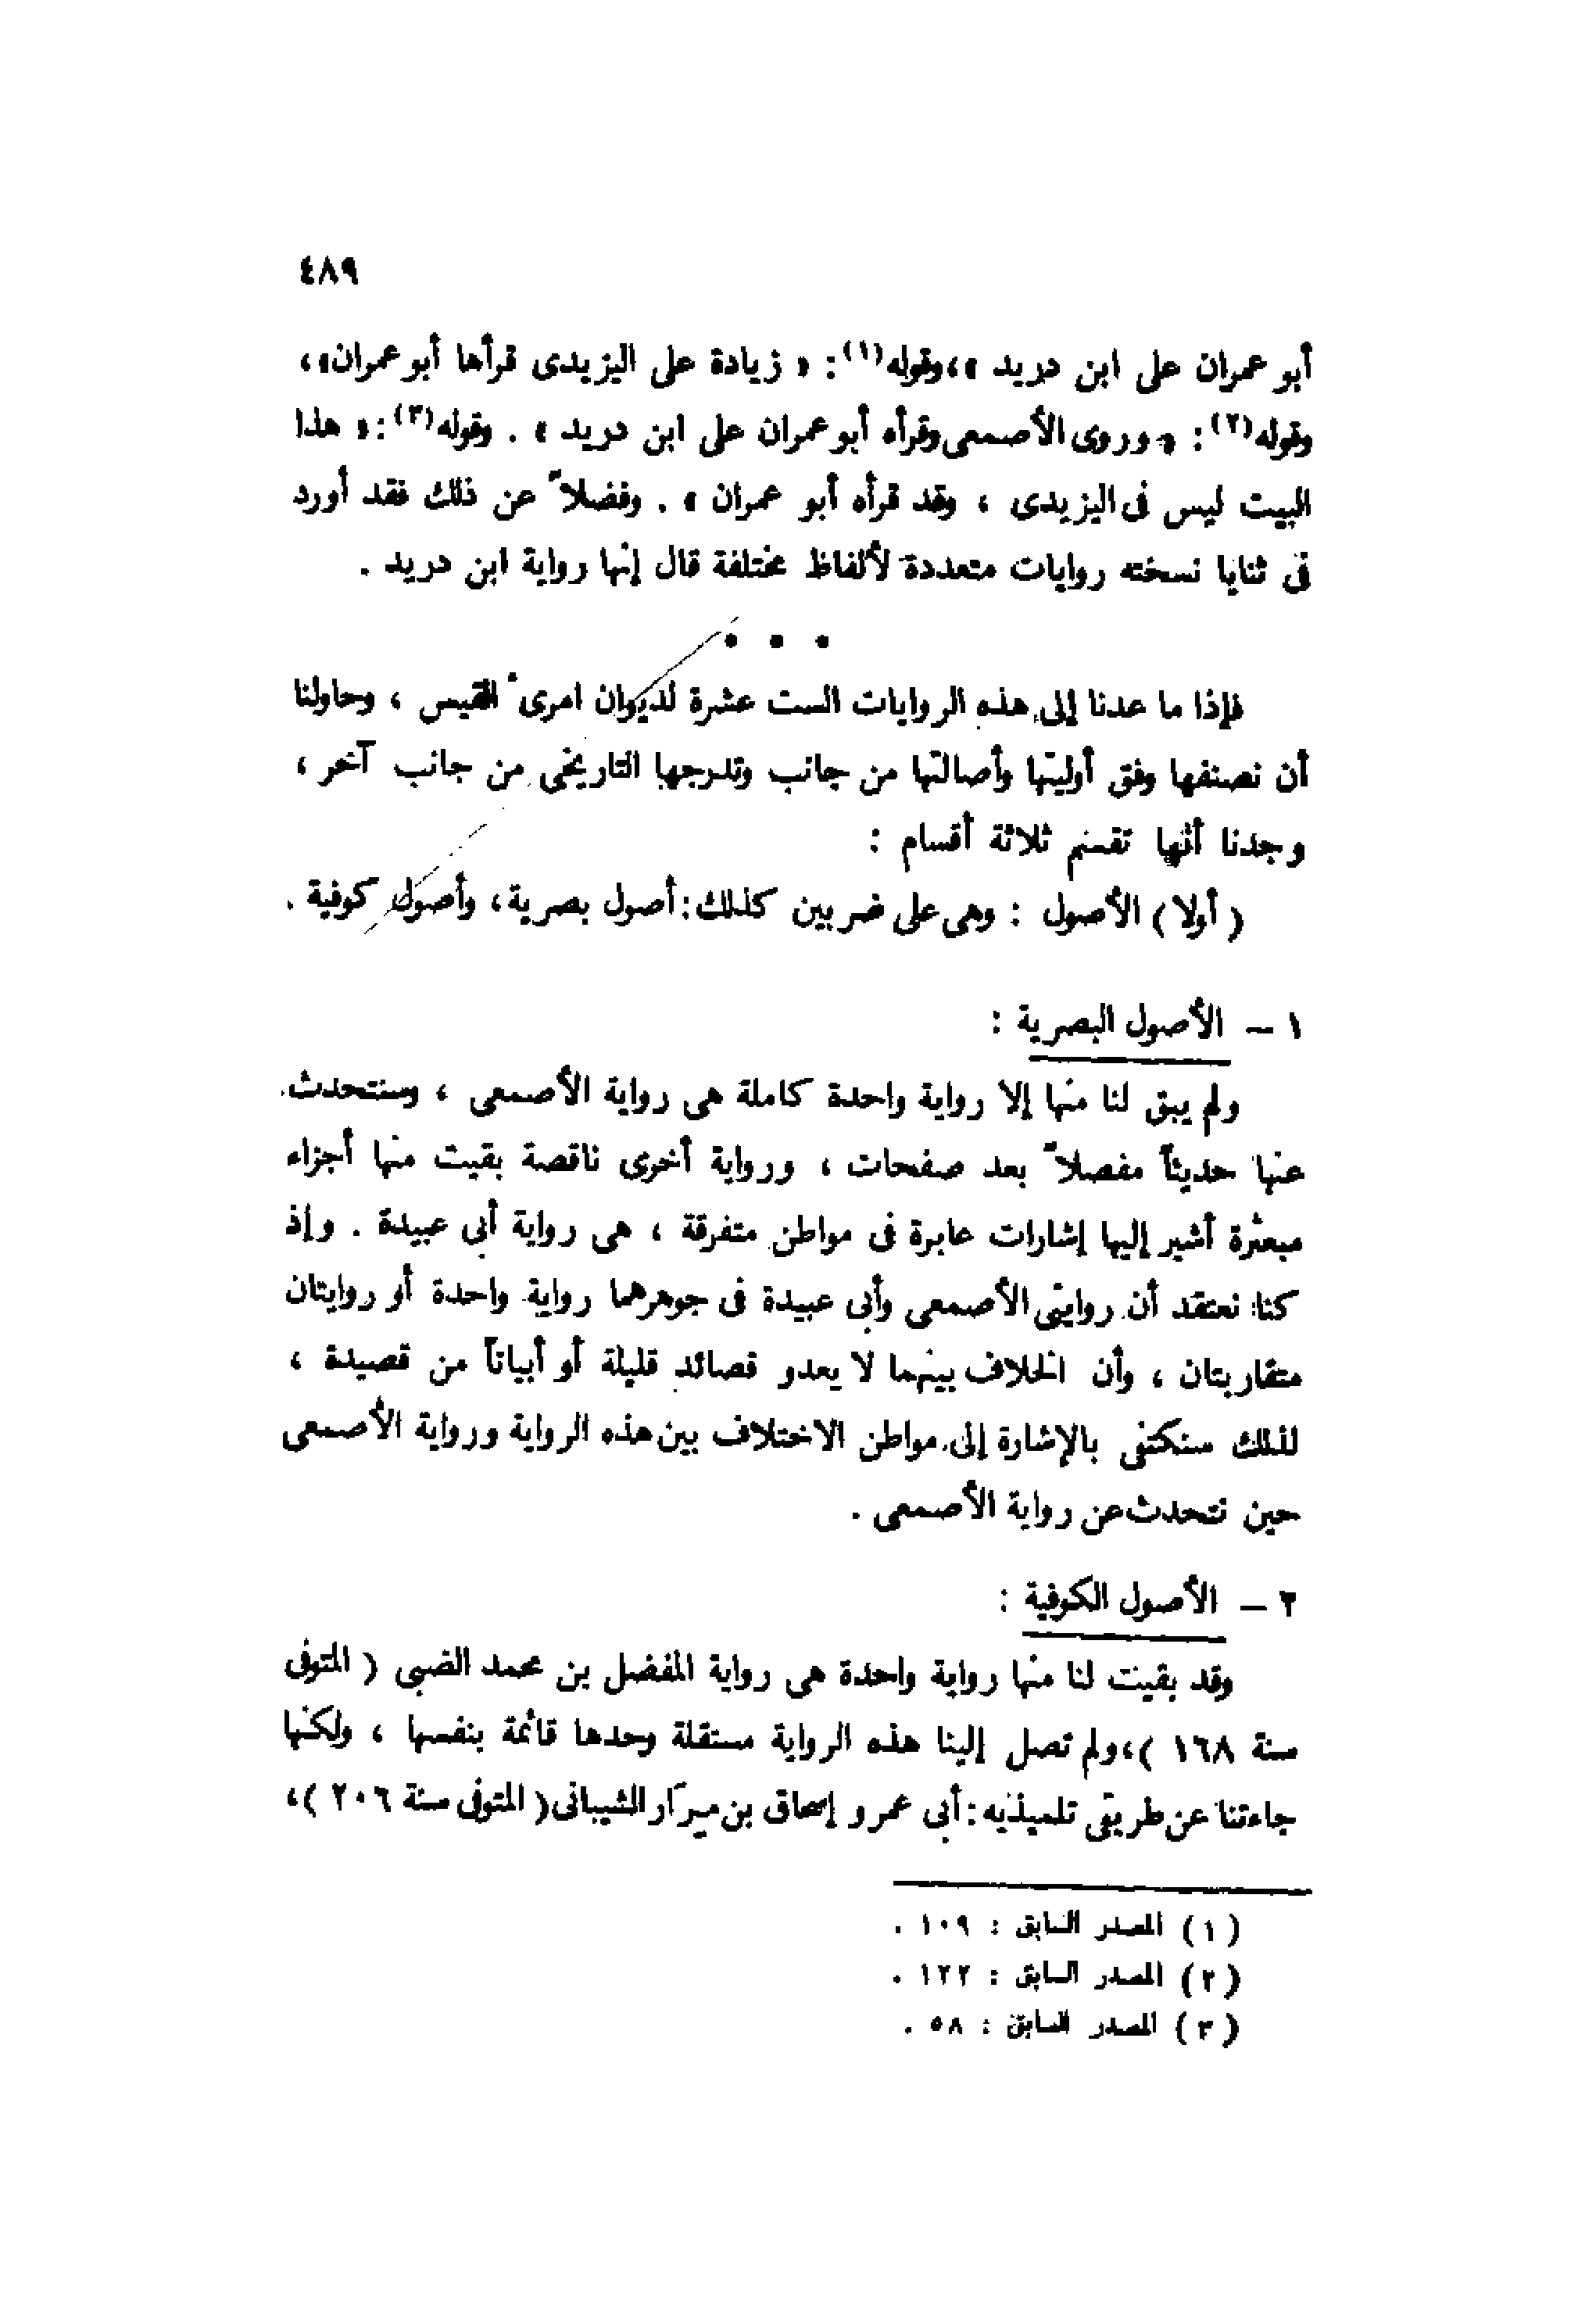 ٤٨٩
أبو عمران على ابن دريد »، وقوله(١): « زيادة على اليزيدى قرأها أبو عمران»،
وقوله(٢): « وروى الأصمعى وقرأه أبو عمران على ابن دريد » . وقوله(٣): « هذا
البيت ليس فى اليزيدى ، وقد قرأه أبو عمران » . وفضلاً عن ذلك فقد أورد
فى ثنايا نسخته روايات متعددة لألفاظ مختلفة قال إنها رواية ابن دريد .
• • •
فإذا ما عدنا إلى هذه الروايات الست عشرة لديوان امرئ القيس ، وحاولنا
أن نصنفها وفق أوليتها وأصالتها من جانب وتدرجها التاريخى من جانب آخر ،
وجدنا أنها تقسم ثلاثة أقسام :
( أولا ) الأصول : وهى على ضربين كذلك: أصول بصرية، وأصول كوفية .
١ – الأصول البصرية :
ولم يبق لنا منها إلا رواية واحدة كاملة هى رواية الأصمعى ، وسنتحدث
عنها حديثاً مفصلاً بعد صفحات ، ورواية أخرى ناقصة بقيت منها أجزاء
مبعثرة أشير إليها إشارات عابرة فى مواطن متفرقة ، هى رواية أبى عبيدة . وإذ
كنا نعتقد أن روايتى الأصمعى وأبى عبيدة فى جوهرهما رواية واحدة أو روايتان
متقاربتان ، وأن الخلاف بينهما لا يعدو قصائد قليلة أو أبياتاً من قصيدة ،
لذلك سنكتفى بالإشارة إلى مواطن الاختلاف بين هذه الرواية ورواية الأصمعى
حين نتحدث عن رواية الأصمعى .
٢ – الأصول الكوفية :
وقد بقيت لنا منها رواية واحدة هى رواية المفضل بن محمد الضبى ( المتوفى
سنة ١٦٨ )، ولم تصل إلينا هذه الرواية مستقلة وحدها قائمة بنفسها ، ولكنها
جاءتنا عن طريقى تلميذيه: أبى عمرو إسحاق بن مِرَار الشيبانى( المتوفى سنة ٢٠٦ )،
( ١ ) المصدر السابق : ١٠٩ .
( ٢ ) المصدر السابق : ١٢٢ .
( ٣ ) المصدر السابق : ٥٨ .